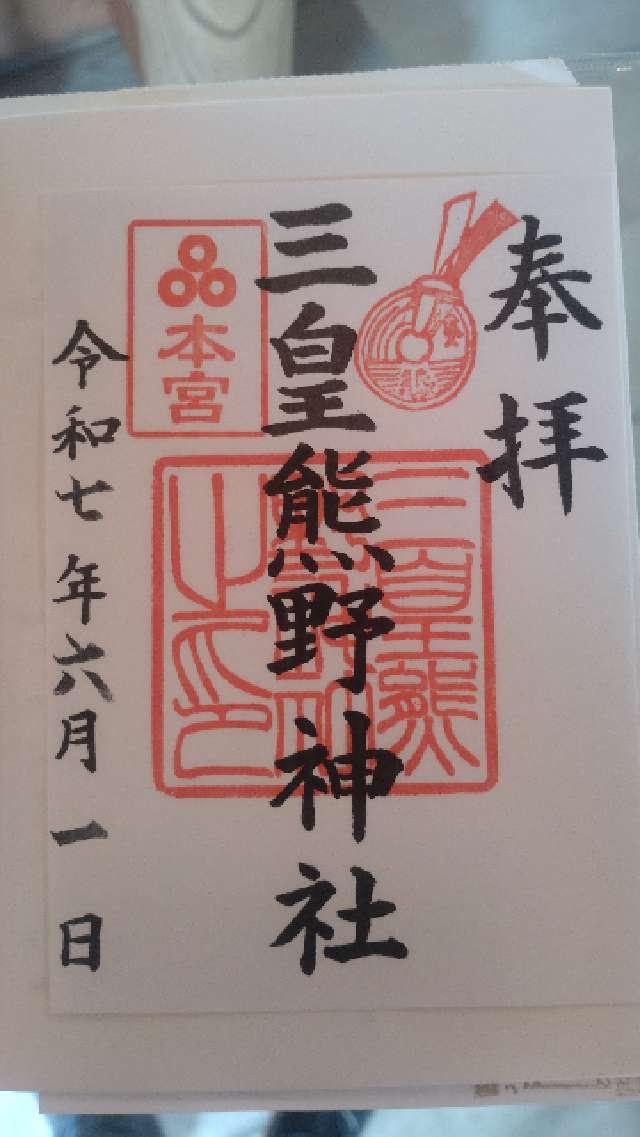 奉拝
三皇熊野神社
本宮
三皇熊
令和七年六月一日